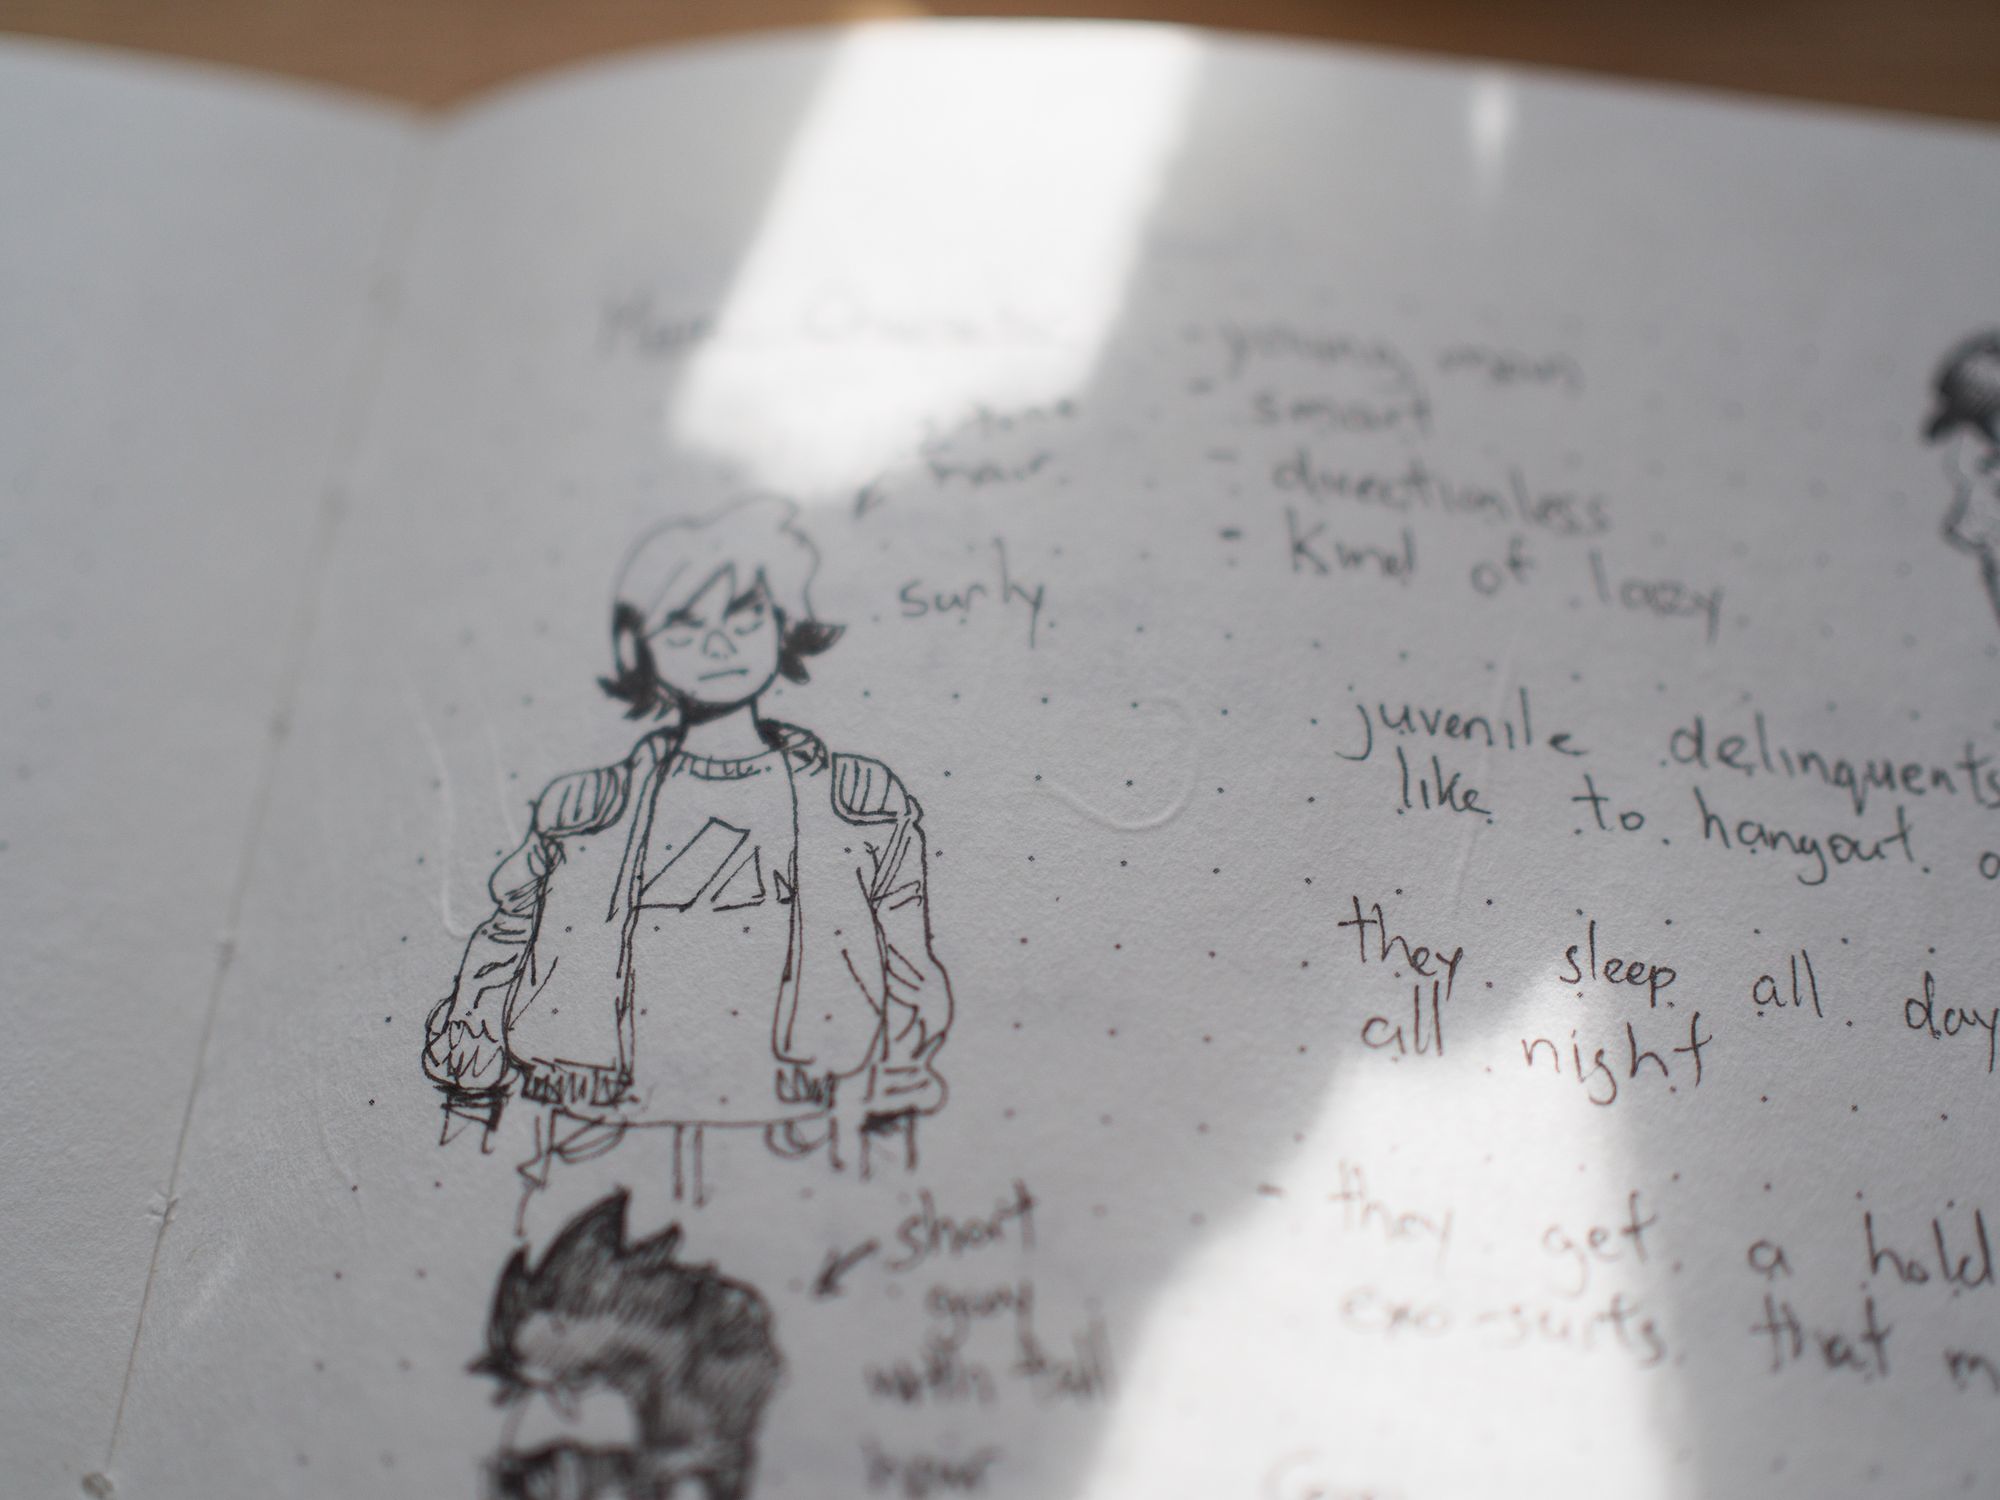 Main Character
2 tone
hair
surly
- young man
- smart
- directionless
- Kind of lazy
juvenile delinquents
like to hangout
they sleep all day
all night
- they get a hold
exo-suits that
short
guy
with tall
hair